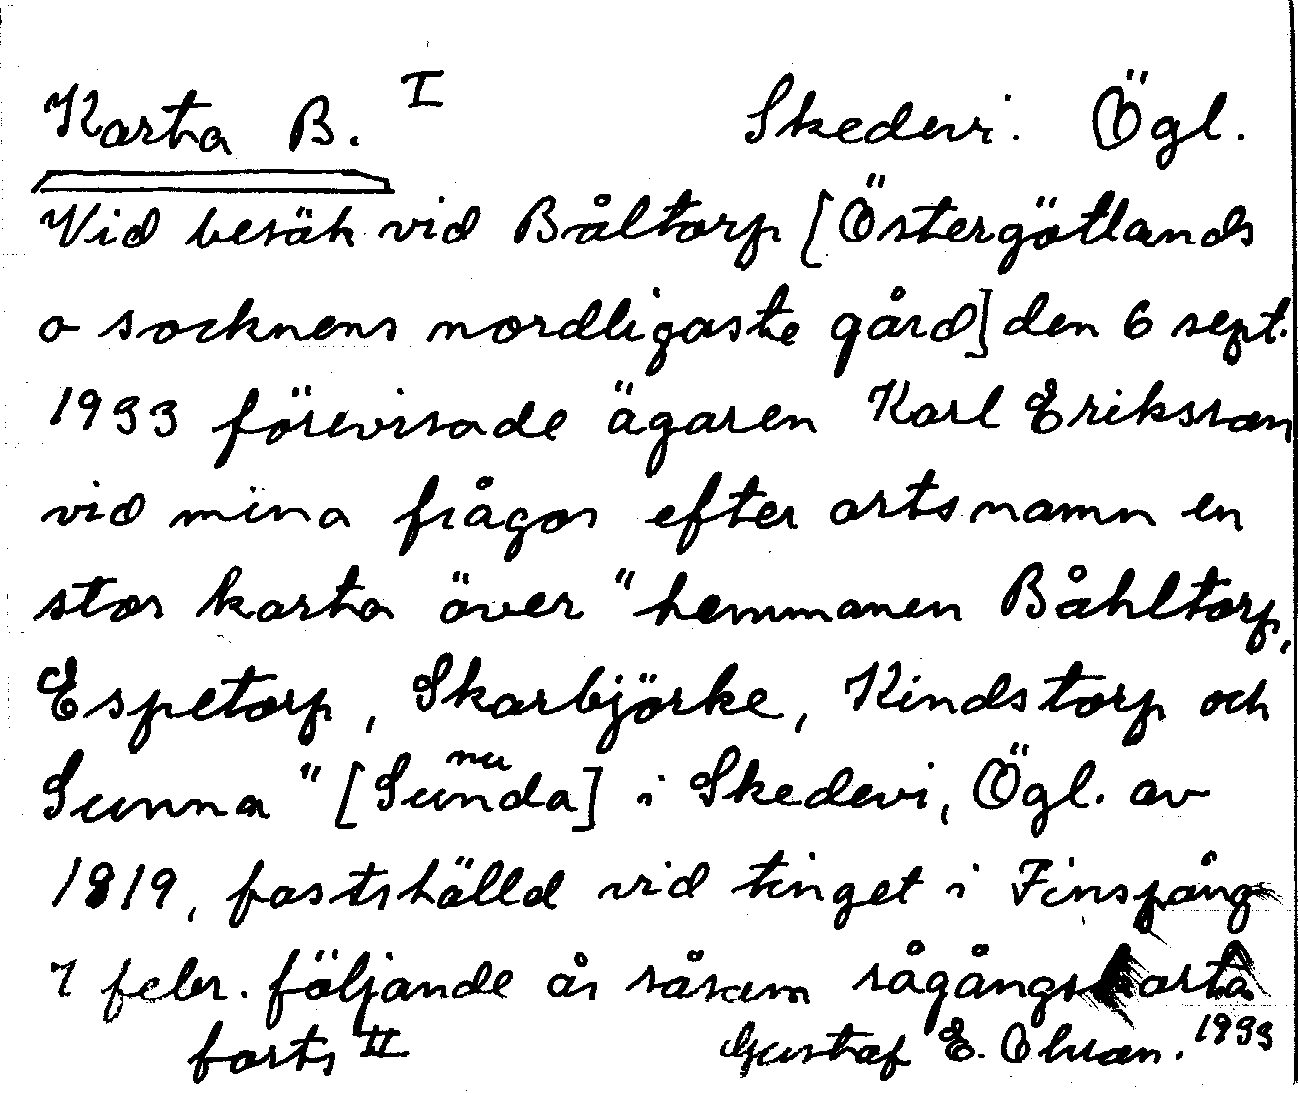 Karta B. I Skedevi. Ögl.
Vid besök vid Båltorp [Östergötlands
o socknens nordligaste gård] den 6 sept.
1933 förevisade ägaren Karl Eriksson
vid mina frågor efter ortsnamn en
stor karta över "hemmanen Båhltorp,
Espetorp, Skarbjörke, Kindstorp och
Sunna" [Sunda nu] i Skedevi, Ögl. av
1819, fastställd vid tinget i Finspång
7 febr. följande år såsom rågångskarta
forts II Gustaf E. Olsson. 1933